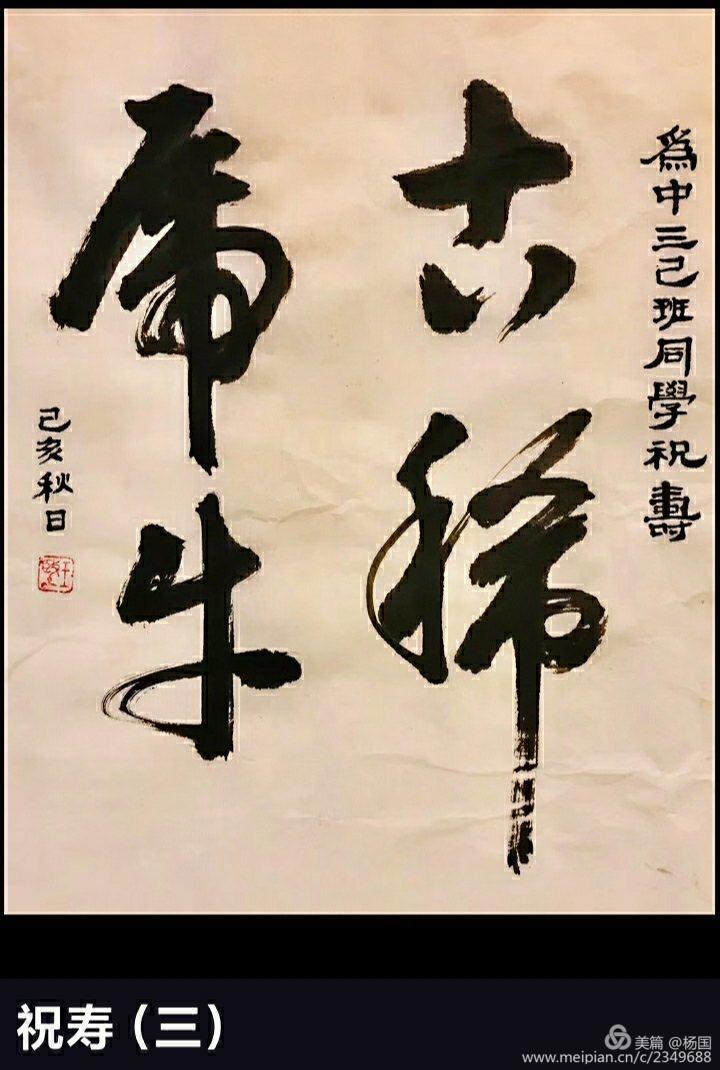 爲中三己班同學祝壽
古稀
虎牛
己亥秋日
祝寿（三）
美篇 @杨国
www.meipian.cn/c/2349688